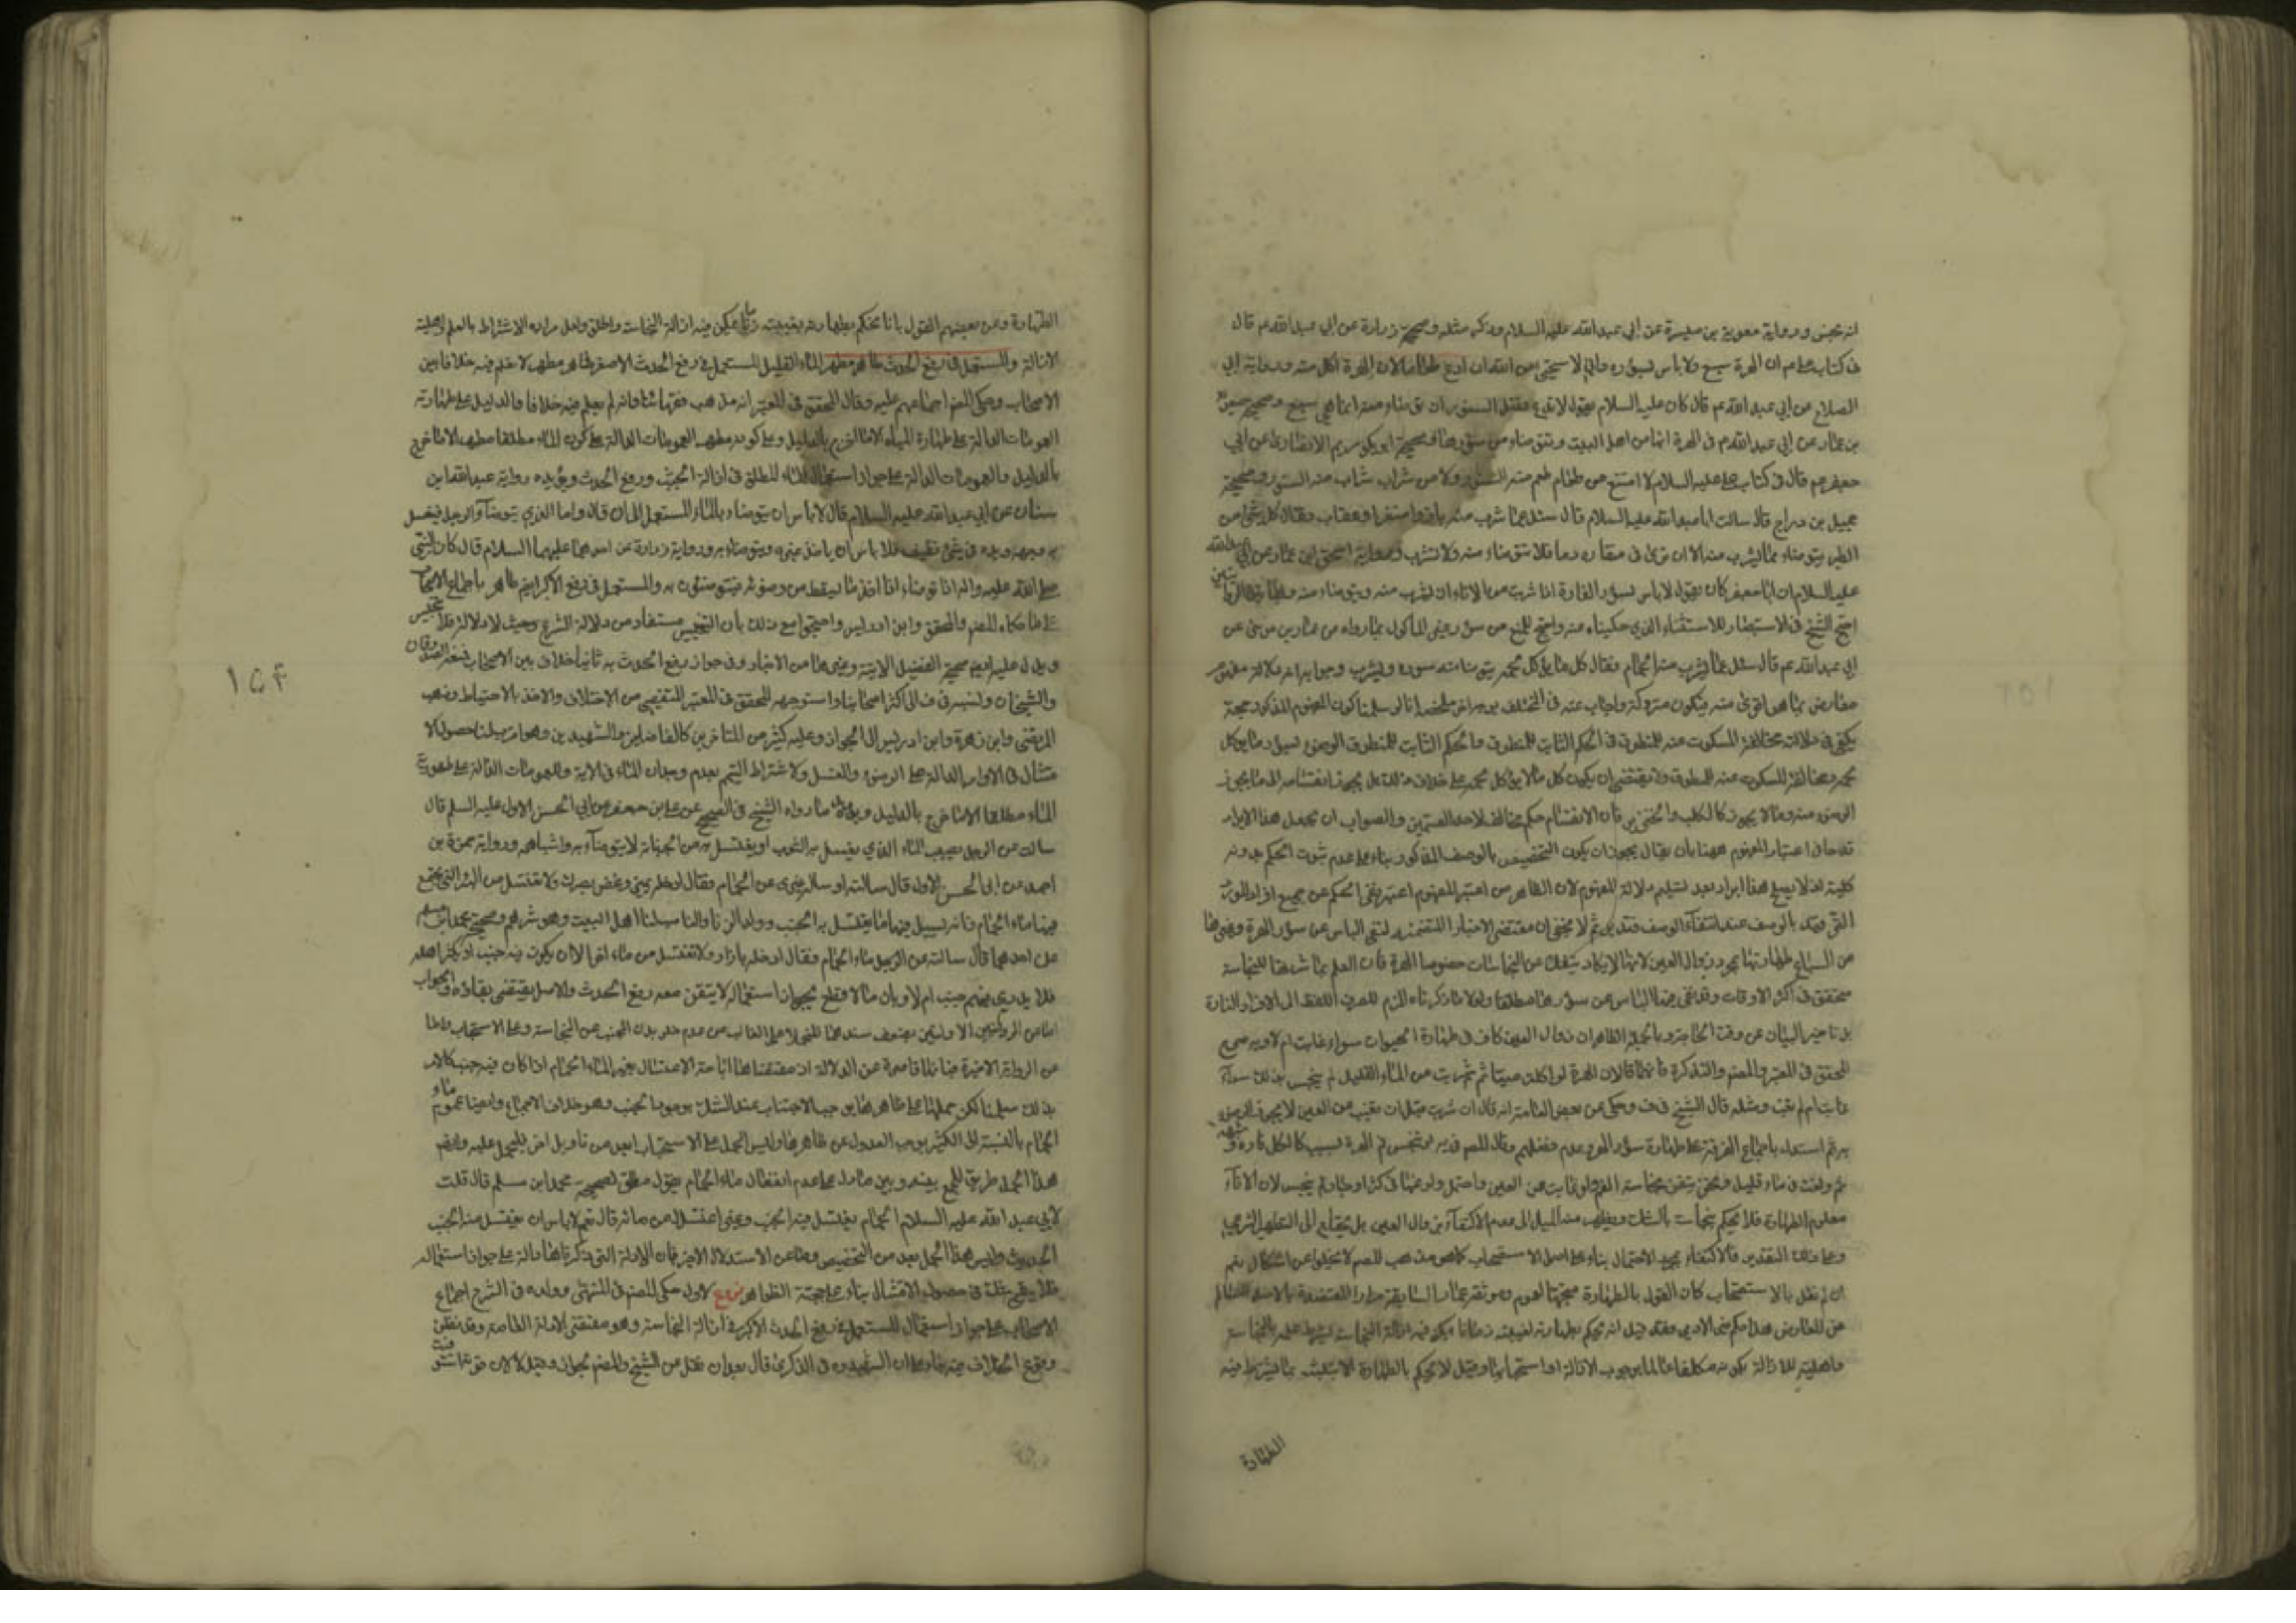 انه نجس ورواية معوية بن ميسرة عن ابي عبد الله عليه السلام وذكر مثله وصحيحة زرارة عن ابي عبد الله عم قال
في كتاب علي عم ان الهرة سبع ولا باس بسؤره واني لاستحيي من الله ان ادع طعاما لان الهرة اكل منه ورواية ابي
الصلاح عن ابي عبد الله عم قال كان علي عليه السلام يقول لا تدع فضل السنور ان تتوضاء منه انما هي سبع وصحيحة معوية
بن عمار عن ابي عبد الله عم في الهرة انها من اهل البيت ويتوضاء من سؤرها وصحيحة ابو مريم الانصاري عن ابي
جعفر عم قال في كتاب علي عليه السلام لا امتنع من طعام طعم منه السنور ولا من شراب شرب منه السنور وصحيحة
جميل بن دراج قال سالت ابا عبد الله عليه السلام قال سئل عما شرب منه باز او صقر او عقاب فقال كل شئ من
الطير يتوضاء مما يشرب منه الا ان ترى في منقاره دما فلا تتوضاء منه ولا تشرب ورواية اسحق ابن عمار عن ابي عبد الله
عليه السلام ان ابا جعفر كان يقول لا باس بسؤر الفارة اذا شربت من الاناء ان تشرب منه ويتوضاء منه
احتج الشيخ في الاستبصار للاستثناء الذي حكيناه عنه واحتج للمنع من سؤر غير المأكول بما رواه عن عمار بن موسى عن
ابي عبد الله عم قال سئل عما يشرب منه الحمام فقال كل ما يؤكل لحمه يتوضا من سوره ويشرب وجوابه
معارض بما هو اقوى منه فيكون متروكة واجاب عنه في المختلف بوجه اخر ملخصه انا لو سلمنا كون المفهوم المذكور حجة
يكفي في دلالته مخالفة المسكوت عنه للمنطوق في الحكم الثابت للمنطوق والحكم الثابت للمنطوق الوضوء بسؤر ما يؤكل
لحمه ومخالفة المسكوت عنه للمنطوق لا يقتضي ان يكون كل ما لا يؤكل لحمه على خلاف ذلك بل يجوز انقسامه الى ما يجوز
الوضوء منه وما لا يجوز كالكلب والخنزير فان الانقسام حكم مخالف لاحد القسمين والصواب ان يجعل هذا الايراد
قادحا في اعتبار المفهوم ههنا بان يقال يجوز ان يكون التخصيص بالوصف المذكور بناء على عدم ثبوت الحكم بدونه
كلية اذ لا يصح هذا ايراد بعد تسليم دلالة المفهوم لان الظاهر من اعتبر المفهوم اعتبر نفي الحكم عن جميع افراد المورد
التي وقعت بالوصف عند انتفاء الوصف فتدبر ثم لا يخفى ان مقتضى الاخبار المتضمنة لنفي الباس عن سؤر الهرة وغيرها
من السباع طهارتها بمجرد زوال العين لانها لا يكاد ينفك عن النجاسات خصوصا الهرة فان العلم بمباشرتها للنجاسة
متحقق في اكثر الاوقات وقد نفي عنها الباس عن سؤرها مطلقا ولولا ما ذكرناه للزم لصرف اللفظ الى الافراد النادرة
بل تاخير البيان عن وقت الحاجة وبالجملة الظاهر ان زوال العين كاف في طهارة الحيوان سواء غابت ام لا وبه صرح
المحقق في المعتبر والمصنف في التذكرة فانهما قالا ان الهرة لو اكلت ميتة ثم شربت من الماء القليل لم ينجس بذلك سواء
غابت ام لم تغب ومثله قال الشيخ في ف وحكى عن بعض العامة انه قال ان شربت قبل ان تغيب عن العين لا يجوز الوضوء
به ثم استدل باجماع الفرقة على طهارة سؤر الهرة
ثم ولغت في ماء قليل ونحن نتيقن نجاسة الفم ولو غابت عن العين واحتمل ولوغها في كثير او جار لم ينجس لان الاناء
معلوم الطهارة فلا يحكم بنجاسة بالشك ويظهر منه الميل الى عدم الاكتفاء بزوال العين بل يحتاج الى التطهير الشرعي
وعلى ذلك التقدير فالاكتفاء بمجرد الاحتمال بناء على اصل الاستصحاب كما هو مذهب المصنف لا يخلو عن اشكال نعم
ان لم نقل بالاستصحاب كان القول بالطهارة متجها لعموم موثقة عمار السابقة مرارا المعتضدة بالاصل السالم
عن المعارض هذا حكم غير الادمي وقد قيل انه يحكم بطهارته لغيبته زمانا يمكن فيه ازالة النجاسة بشرط علمه بالنجاسة
واهليته للازالة بكونه مكلفا عالما بوجوب الازالة او استحبابها وقيل لا يحكم بالطهارة الا بتلبسه بما يشترط فيه
الطهارة
الطهارة وعن بعضهم القول بانا نحكم بطهارته بغيبته زمانا يمكن فيه ازالة النجاسة واطلق ولعل مراده الاشتراط بالعلم واهلية
الازالة والمستعمل في رفع الحدث طاهر مطهر الماء القليل المستعمل في رفع الحدث الاصغر طاهر مطهر لا نعلم فيه خلافا بين
الاصحاب وحكى المصنف اجماعهم عليه وقال المحقق في المعتبر انه مذهب فقهائنا وانه لم يعلم فيه خلافا والدليل على طهارته
العمومات الدالة على طهارة المياه الا ما خرج بالدليل وعلى كونه مطهرا العمومات الدالة على كون الماء مطلقا مطهرا الا ما خرج
بالدليل والعمومات الدالة على جواز استعمال الماء المطلق في ازالة الخبث ورفع الحدث ويؤيده رواية عبد الله ابن
سنان عن ابي عبد الله عليه السلام قال لا باس ان يتوضاء بالماء المستعمل الى ان قال واما الذي يتوضأ الرجل فيغسل
به وجهه ويده في شئ نظيف فلا باس ان ياخذ غيره ويتوضاء به ورواية زرارة عن احدهما عليهما السلام قال كان النبي
صلى الله عليه واله اذا توضاء اخذ ما يسقط من وضوئه فيتوضئون به والمستعمل في رفع الاكبر ايضا طاهر باجماع الاصحاب
على ما حكاه المصنف والمحقق وابن ادريس واحتجوا مع ذلك بان التنجيس مستفاد من دلالة الشرع وحيث لا دلالة فلا تنجيس
ويدل عليه ايضا صحيحة الفضيل الاتية وغيرها من الاخبار وفي جواز رفع الحدث به ثانيا خلاف بين الاصحاب فمنعه الصدوقان
والشيخان ونسبه في ف الى اكثر اصحابنا واستوجهه المحقق في المعتبر للتفصي من الاختلاف والاخذ بالاحتياط وذهب
المرتضى وابن زهرة وابن ادريس الى الجواز وعليه كثير من المتاخرين كالفاضلين والشهيدين وهو اقرب لنا حصول الا
متثال في الاوامر الدالة على الوضوء والغسل والاشتراط التيمم بعدم وجدان الماء في الاية والعمومات الدالة على طهورية
الماء مطلقا الا ما خرج بالدليل ويؤيده ما رواه الشيخ في الصحيح عن علي بن جعفر عن ابي الحسن الاول عليه السلم قال
سالت عن الرجل يصيب الماء الذي يغسل به الثوب او يغتسل به من الجنابة لا يتوضأ به واشباهه ورواية حمزة بن
احمد عن ابي الحسن الاول قال سالته او ساله غيري عن الحمام فقال ادخله بميزر وغض بصرك ولا تغتسل من البئر التي يجتمع
فيها ماء الحمام فانه يسيل فيها ما يغتسل به الجنب وولد الزنا والناصب لنا اهل البيت وهو شرهم وصحيحة محمد ابن مسلم
عن احدهما قال سالته عن ماء الحمام فقال ادخله بازار ولا تغتسل من ماء اخر الا ان يكون فيه جنب او يكثر اهله
فلا يدرى فيهم جنب ام لا وبان ما لا يقطع بجواز استعماله لا يتيقن معه رفع الحدث والاصل يقتضي بقاءه والجواب
اما عن الروايتين الاوليين بضعف سندهما للغالب من عدم خلو بدن الجنب عن النجاسة وعلى الاستحباب واما
عن الرواية الاخيرة فبانها قاصرة عن الدلالة اذ مقتضاها اباحة الاغتسال بغير ماء الحمام اذا كان فيه جنب
بذلك سلمنا لكن حملها على ظاهرها يوجب الاجتناب عند الشك بوجود الجنب وهو خلاف الاجماع وايضا عموم ماء
الحمام بالنسبة الى الكثير يوجب العدول عن ظاهرها وليس الحمل على الاستحباب ابعد من تاويل اخر يحمل عليه وايضا
هذا الحمل طريق الجمع بينه وبين ما دل على عدم انفعال ماء الحمام بقول مطلق لصحيحة محمد ابن مسلم قال قلت
لابي عبد الله عليه السلام الحمام يغتسل فيه الجنب وغيره اغتسل من مائه قال نعم لا باس ان يغتسل منه الجنب
الحديث وليس هذا الحمل بعد من التخصيص واما عن الاستدلال الاخير فان الادلة التي ذكرناها دالة على جواز استعماله
فلا يقع شك في حصول الامتثال بناء على حجية الظواهر فروع الاول حكى المصنف في المنتهى وولده في الشرح اجماع
الاصحاب على جواز استعمال المستعمل في رفع الحدث الاكبر في ازالة النجاسة وهو مقتضى الادلة الخاصة وقد نظن
وقوع الخلاف فيه بناء على ان الشهيد ره في الذكرى قال بعد ان نقل عن الشيخ والمصنف الجواز وقيل لا لان قوته استوفيت
۱۵۴